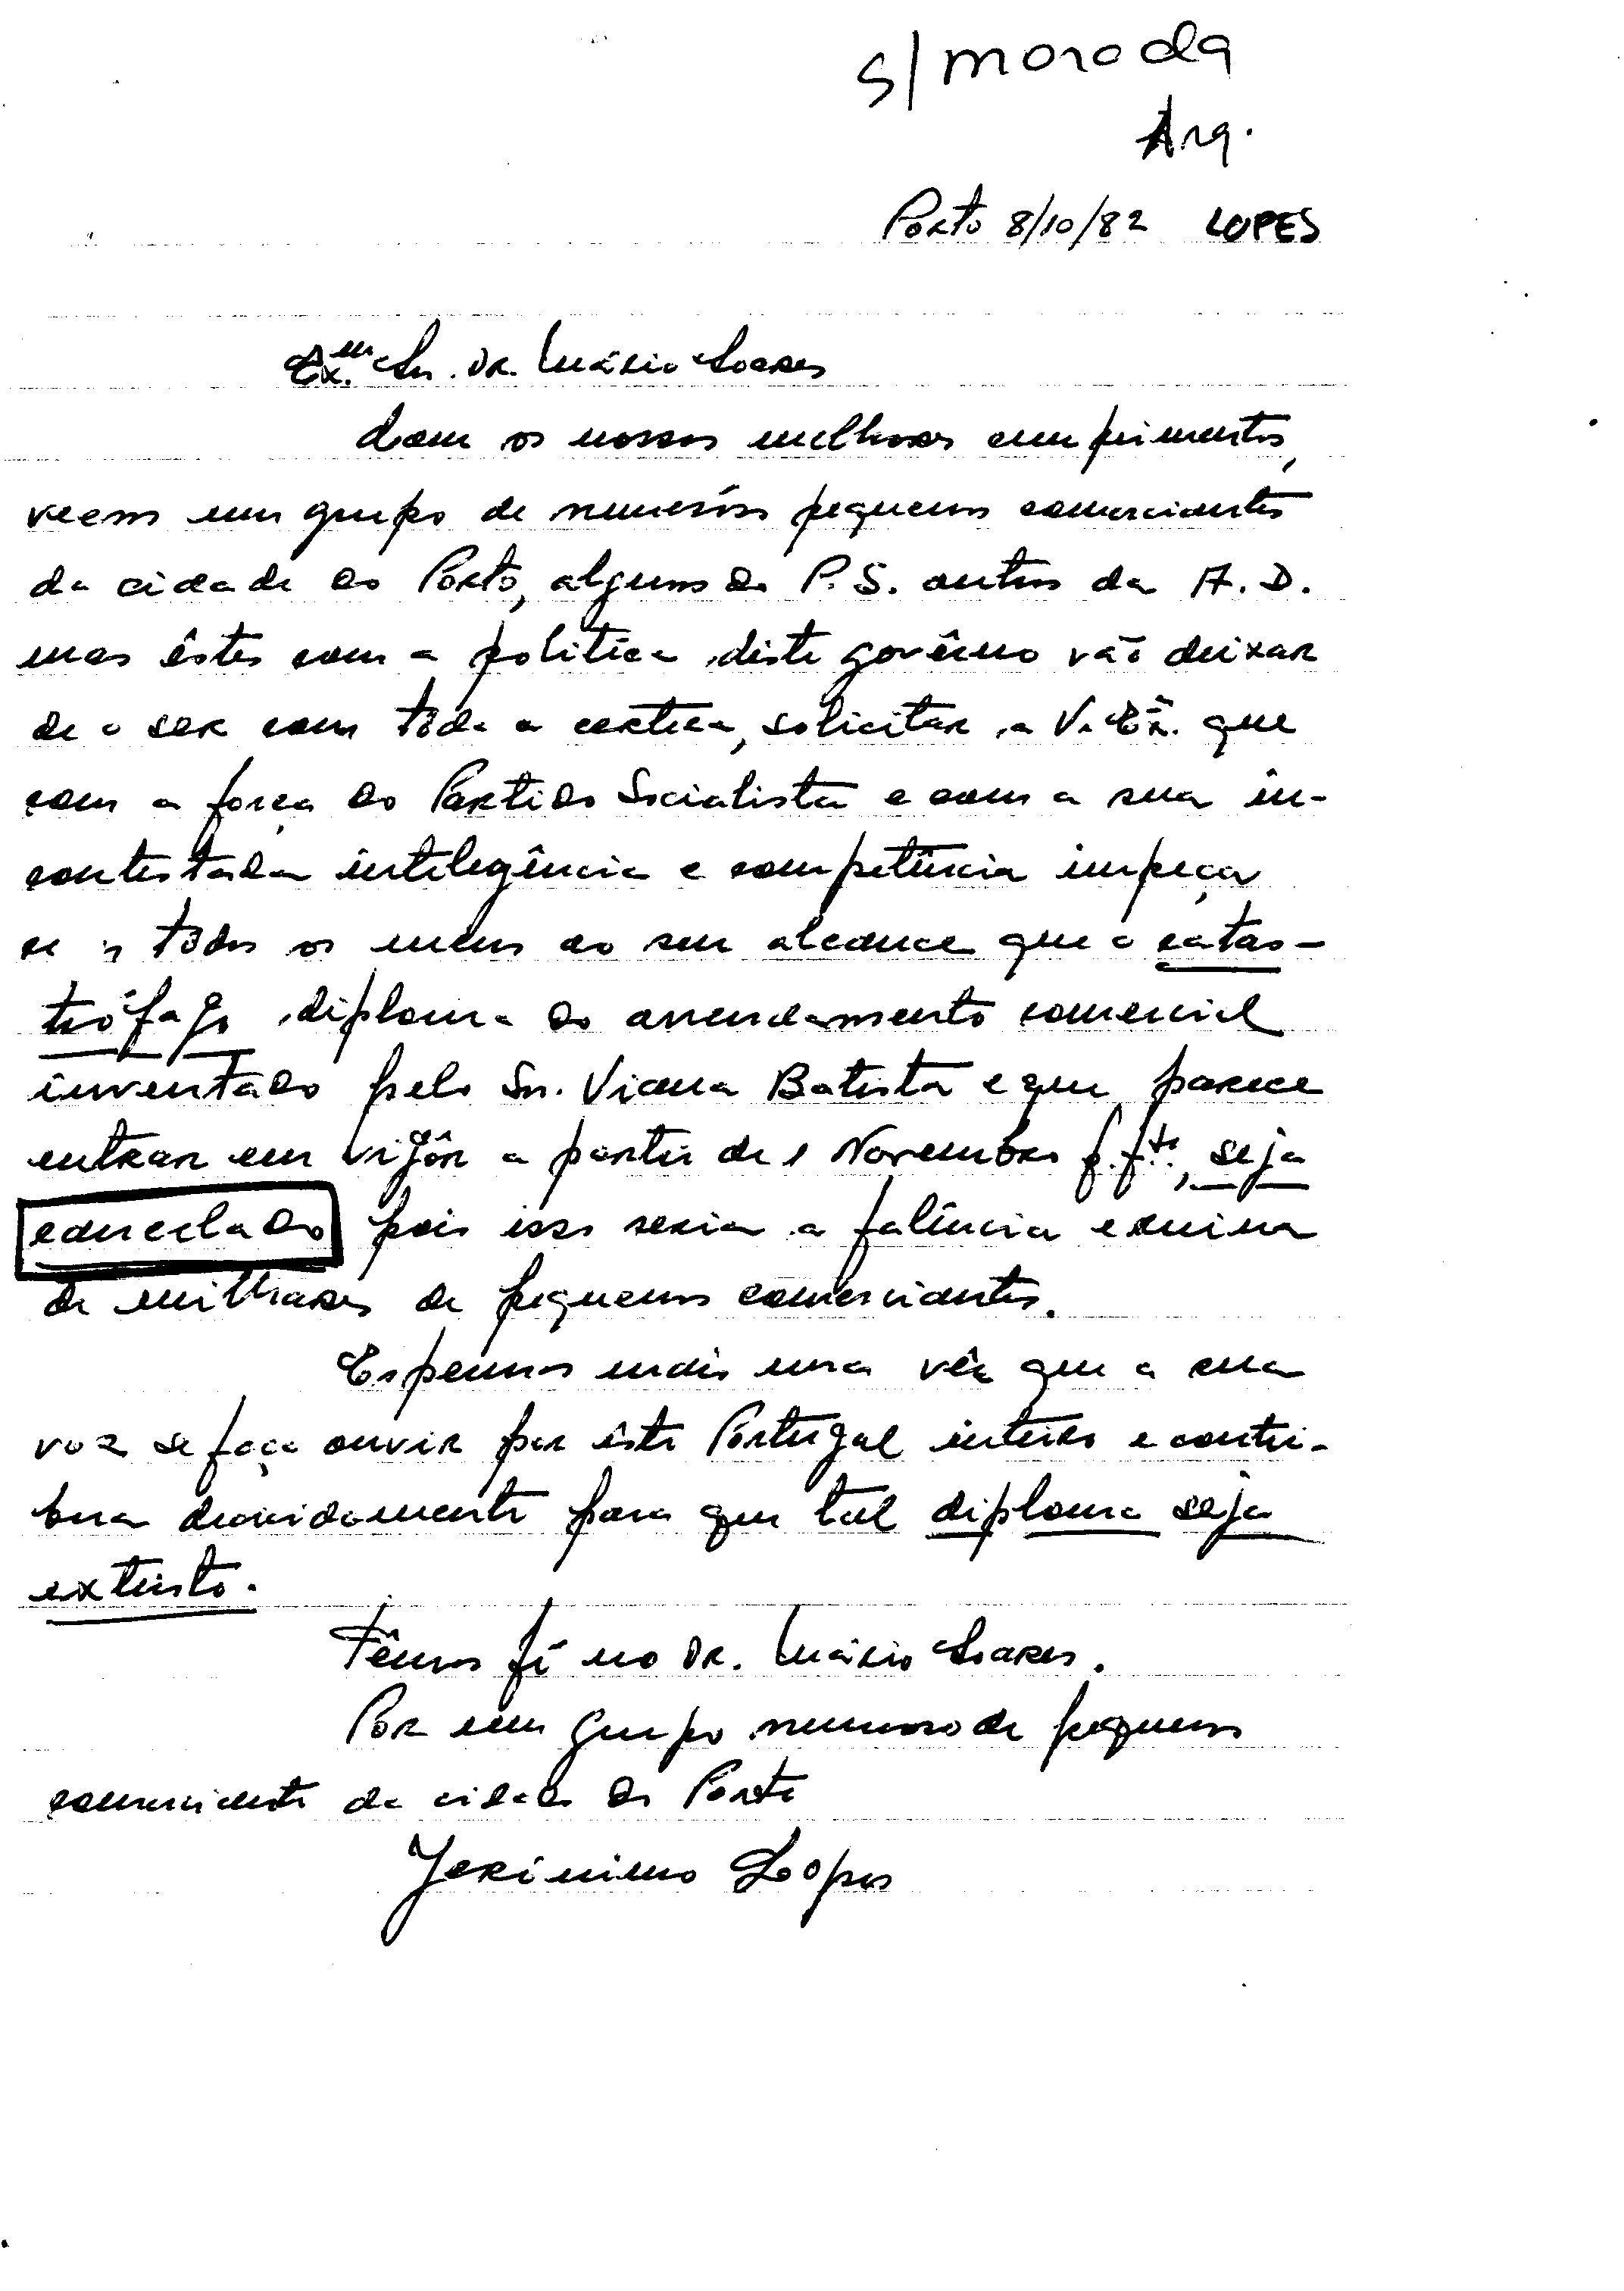 s/morada
Arq.
Porto 8/10/82 LOPES
Exmº Sn. DR. Mário Soares
Com os nossos melhores cumprimentos,
veem um grupo de numerósos pequenos comerciantes
da cidade do Porto, alguns do P.S. outros da A.D.
mas êstes com a politica dêste govêrno vão deixar
de o ser com tôda a certeza, solicitar a V. Exª. que
com a força do Partido Socialista e com a sua in-
contestada inteligência e competência impeça
por todos os meios ao seu alcance que o catas-
trófago diploma do arrendamento comercial
inventado pelo Sn. Viana Batista e que parece
entrar em vigôr a partir de 1 Novembro p.fte., seja
cancelado pois isso seria a falência e ruina
de milhares de pequenos comerciantes.
Esperamos mais uma vêz que a sua
voz se faça ouvir por êste Portugal inteiro e contri-
bua devidamente para que tal diploma seja
extinto.
Têmos fé no DR. Mário Soares.
Por um grupo numeroso de pequenos
comerciantes da cidade do Porto
Jerónimo Lopes